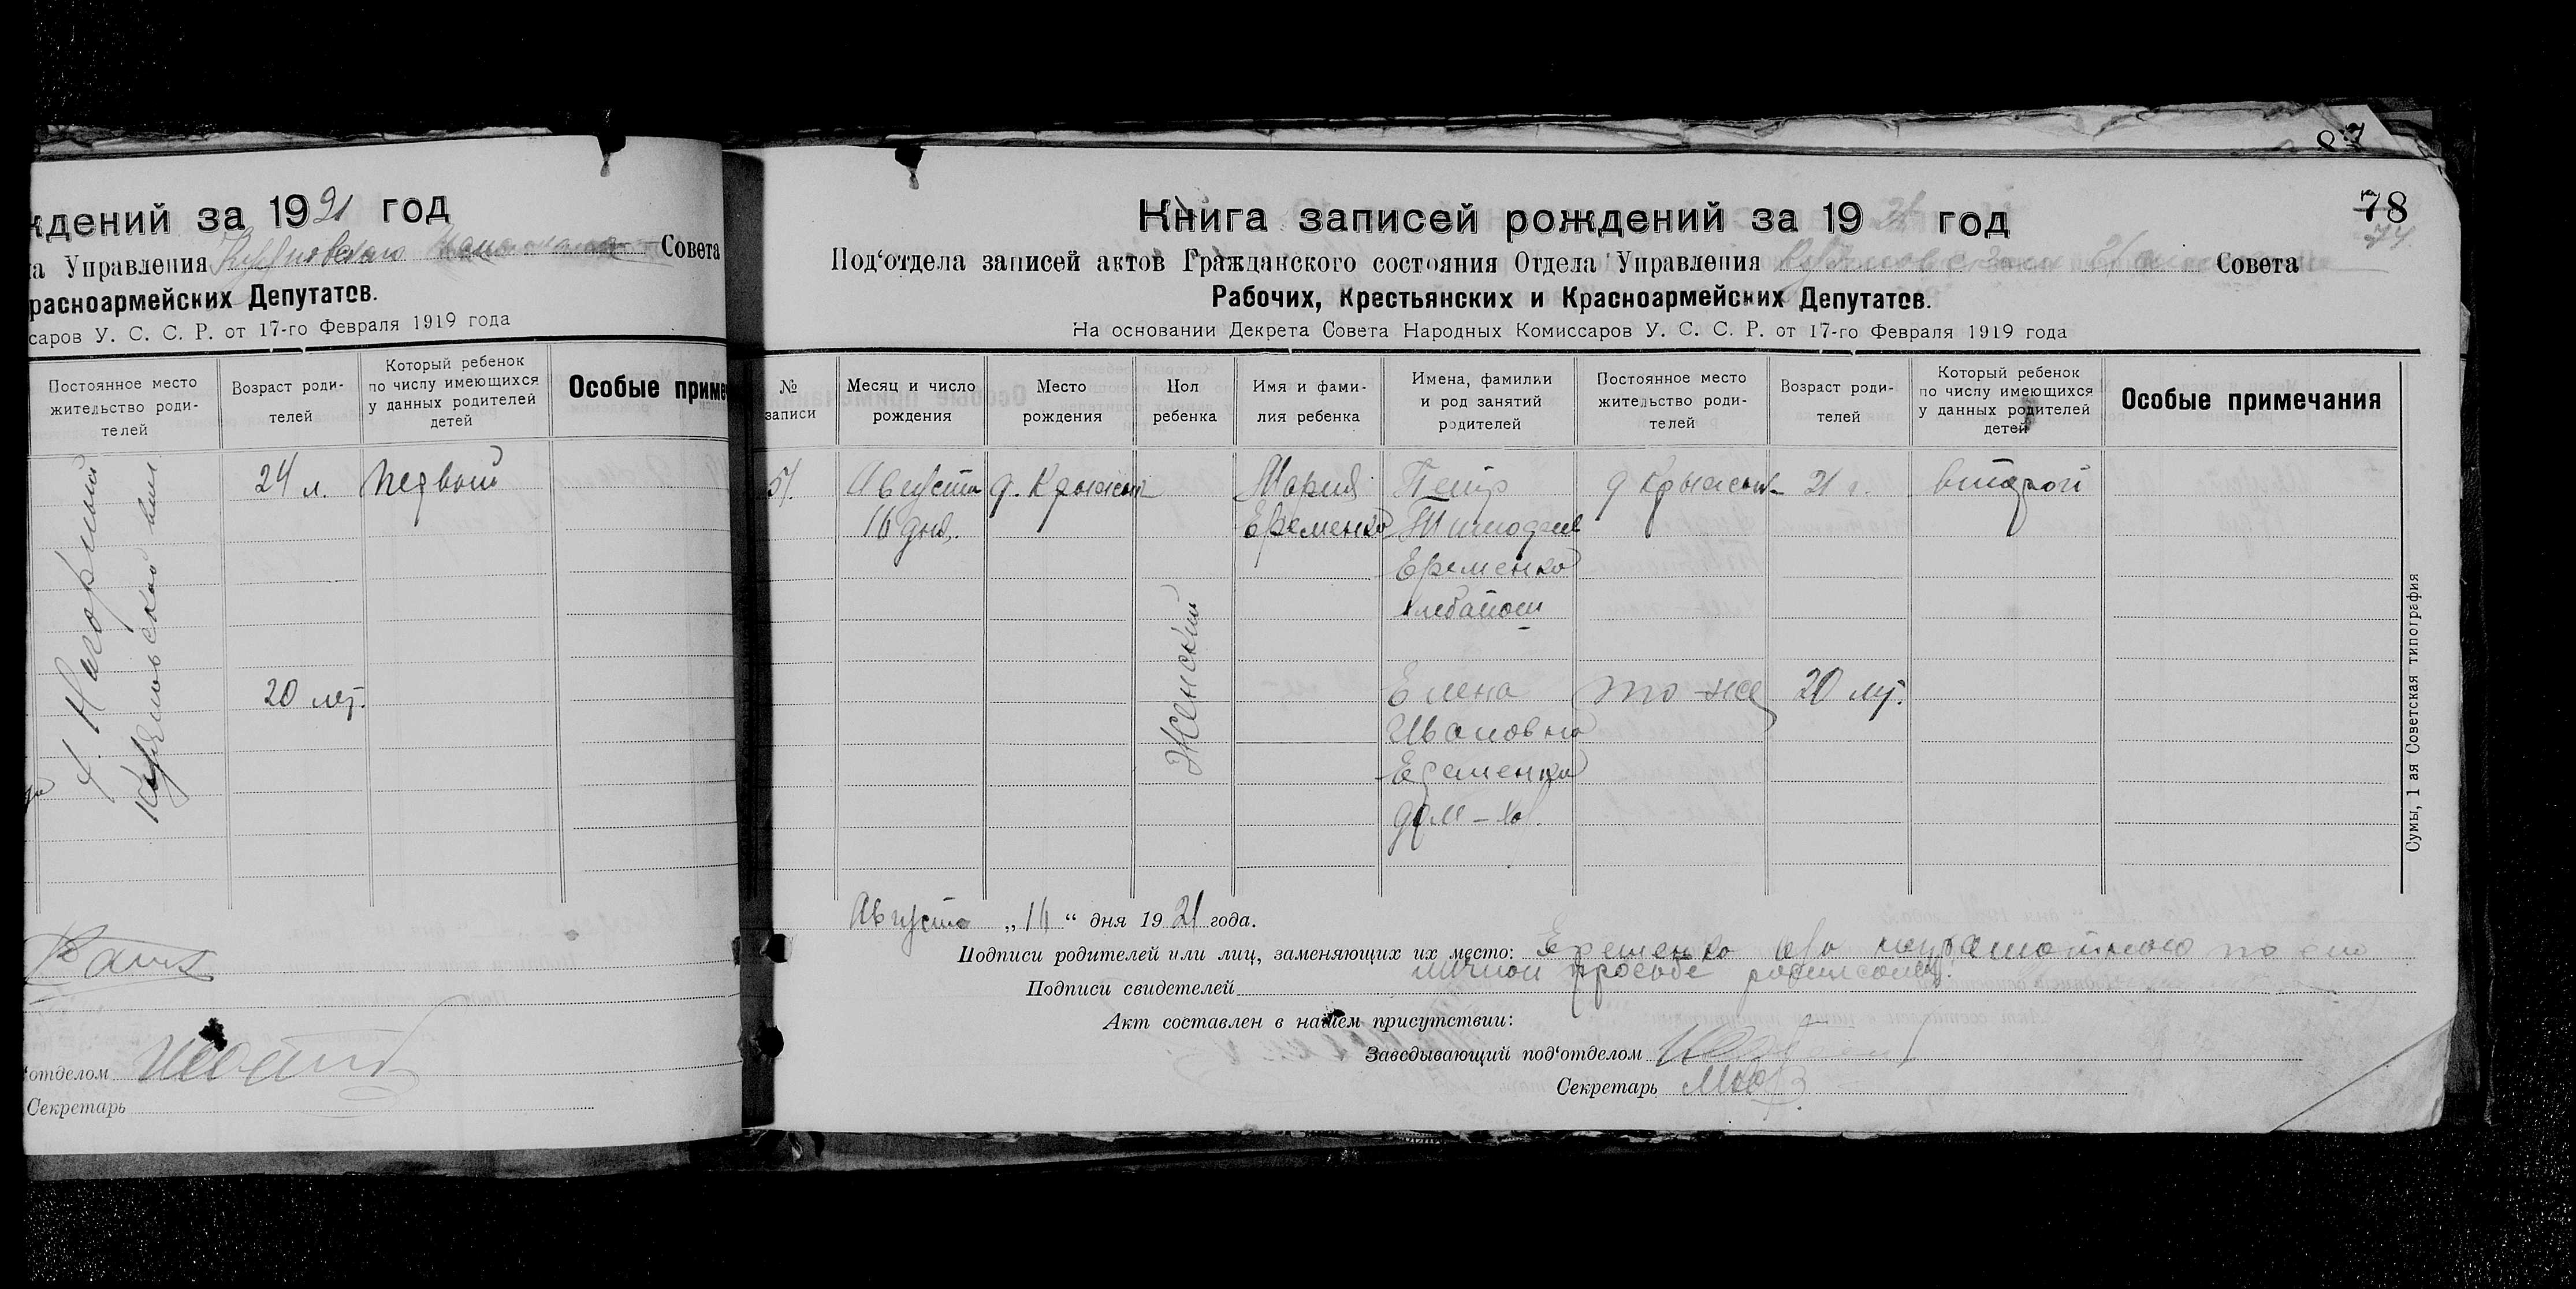 ждений за 1921 год
а Управления Совета
расноармейских Депутатов.
саров У. С. С. Р. от 17-го Февраля 1919 года
Постоянное место жительство роди- телей
Возраст роди- телей
Который ребенок по числу имеющихся у данных родителей детей
Особые приме
24 л.
первый
20 лет.
отделом
Секретарь
87
78
74
Книга записей рождений за 1921 год
Под‘отдела записей актов Гражданского состояния Отдела Управления Совета
Рабочих, Крестьянских и Красноармейских Депутатов.
На основании Декрета Совета Народных Комиссаров У. С. С. Р. от 17-го Февраля 1919 года
№ записи
Месяц и число рождения
Место рождения
Пол ребенка
Имя и фами- лия ребенка
Имена, фамилии и род занятий родителей
Постоянное место жительство роди- телей
Возраст роди- телей
Который ребенок по числу имеющихся у данных родителей детей
Особые примечания
Августа
16 дня.
Женский
Мария
Еременко
Петр
Еременко
хлебопаш
21 г.
второй
Елена
Ивановна
Еременко
дом-хоз.
то-же
20 лет.
Августа „16“ дня 1921 года.
Подписи родителей или лиц, заменяющих их место: Еременко а за неграмотного по его
личной просьбе расписался
Подписи свидетелей
Акт составлен в нашем присутствии:
Заведывающий под‘отделом
Секретарь
Сумы, 1 ая Советская типография